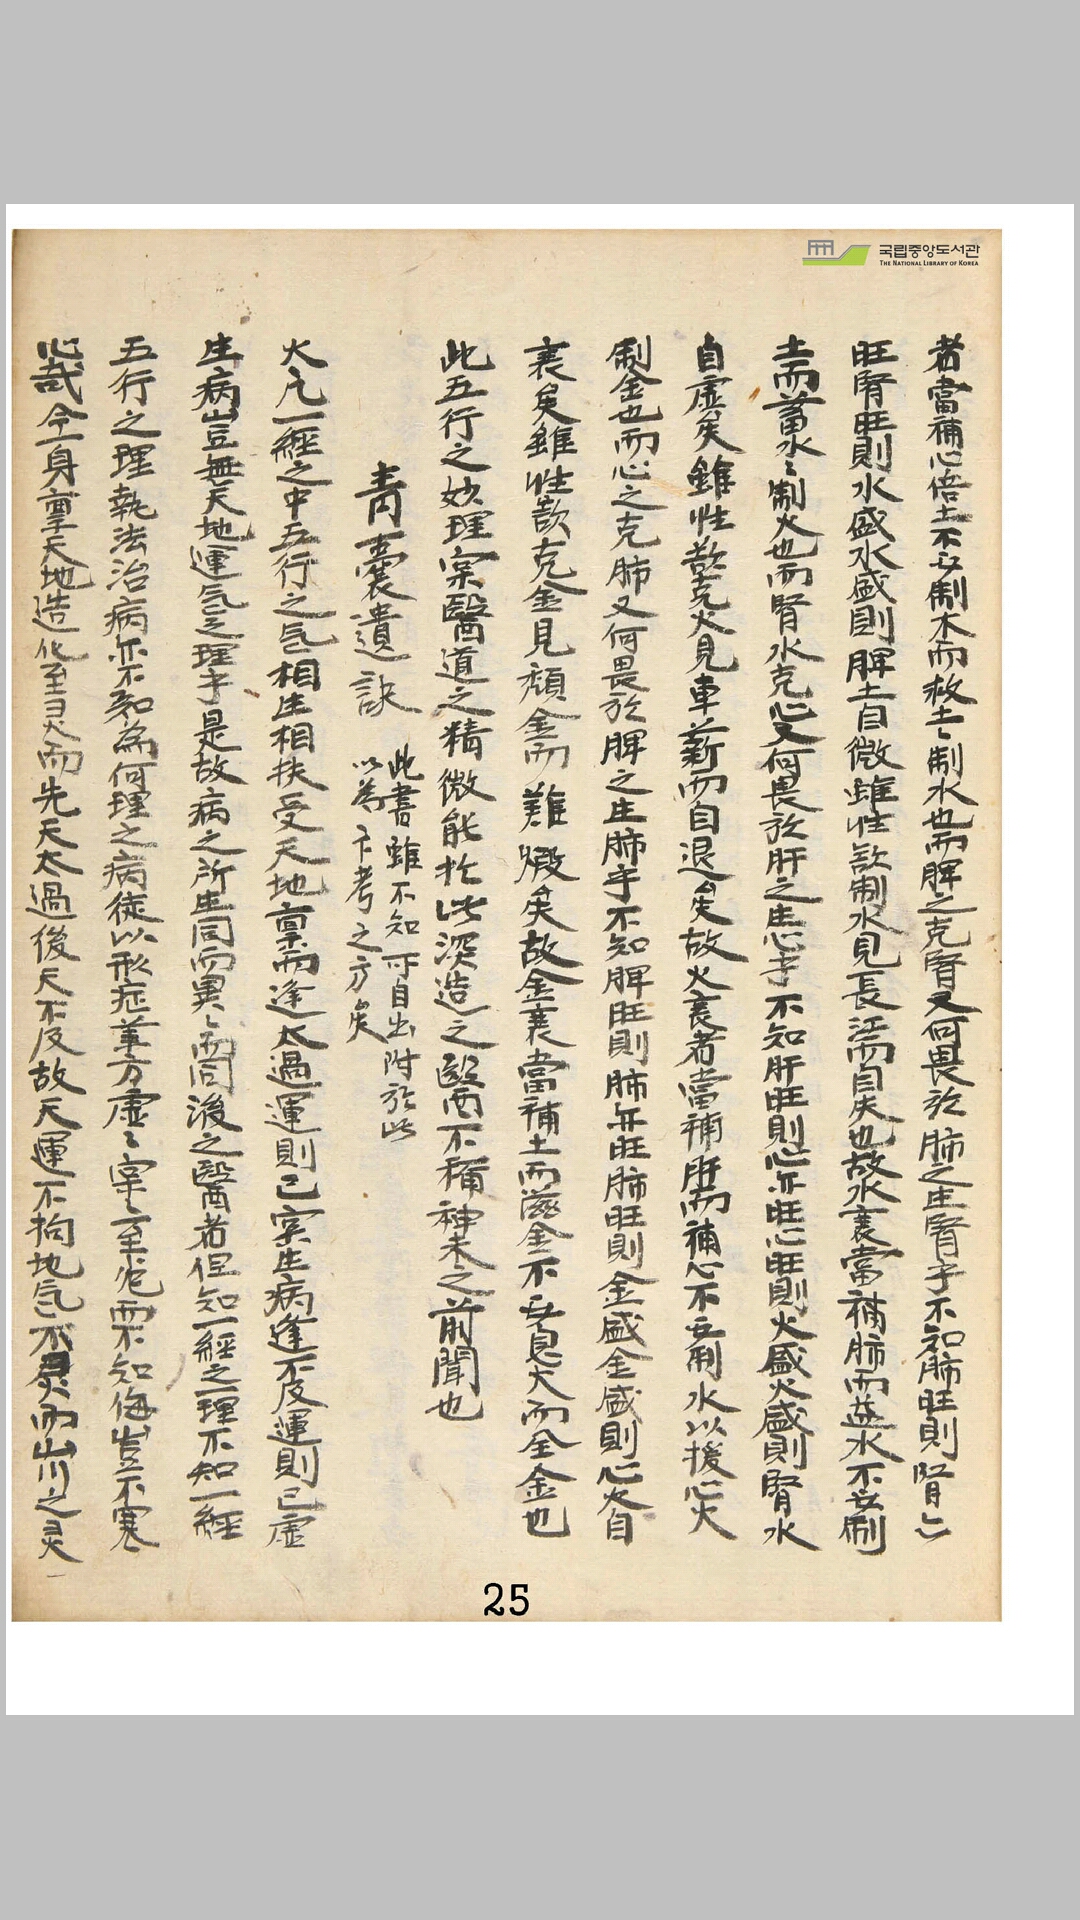 국립중앙도서관
THE NATIONAL LIBRARY OF KOREA
者當補心倍土不必制木而救土〻制水也而脾之克腎又何畏於肺之生腎乎不知肺旺則腎亦
旺腎旺則水盛水盛則脾土自微雖性欲制水見長江而自失也故水衰當補肺而益水不必制
土而蓄水〻制火也而腎水克心又何畏於肝之生心乎不知肝旺則心亦旺心旺則火盛火盛則腎水
自虛矣雖性欲克火見車薪而自退矣故火衰者當補肝而補心不必制水以援心火
制金也而心之克肺又何畏於脾之生肺乎不知脾旺則肺亦旺肺旺則金盛金盛則心火自
衰矣雖性欲克金見頑金而難煅矣故金衰當補土而滋金不必息火而全金也
此五行之妙理宲醫道之精微能於此深造之醫而不稱神未之前聞也
青囊遺訣
此書雖不知所自出附於此
以為下考之方矣
大凡一經之中五行之氣相生相扶受天地稟而逢太過運則已宲生病逢不及運則已虛
生病豈無天地運氣之理乎是故病之所生同而異〻而同後之醫者但知一經之理不知一經
五行之理執法治病亦不知為何理之病徒以形症葷方虛〻宲〻至死而不知悔豈不寒
心哉今身稟天地造化至灵而先天太過後天不及故天運不拘地氣不灵而山川之灵
25